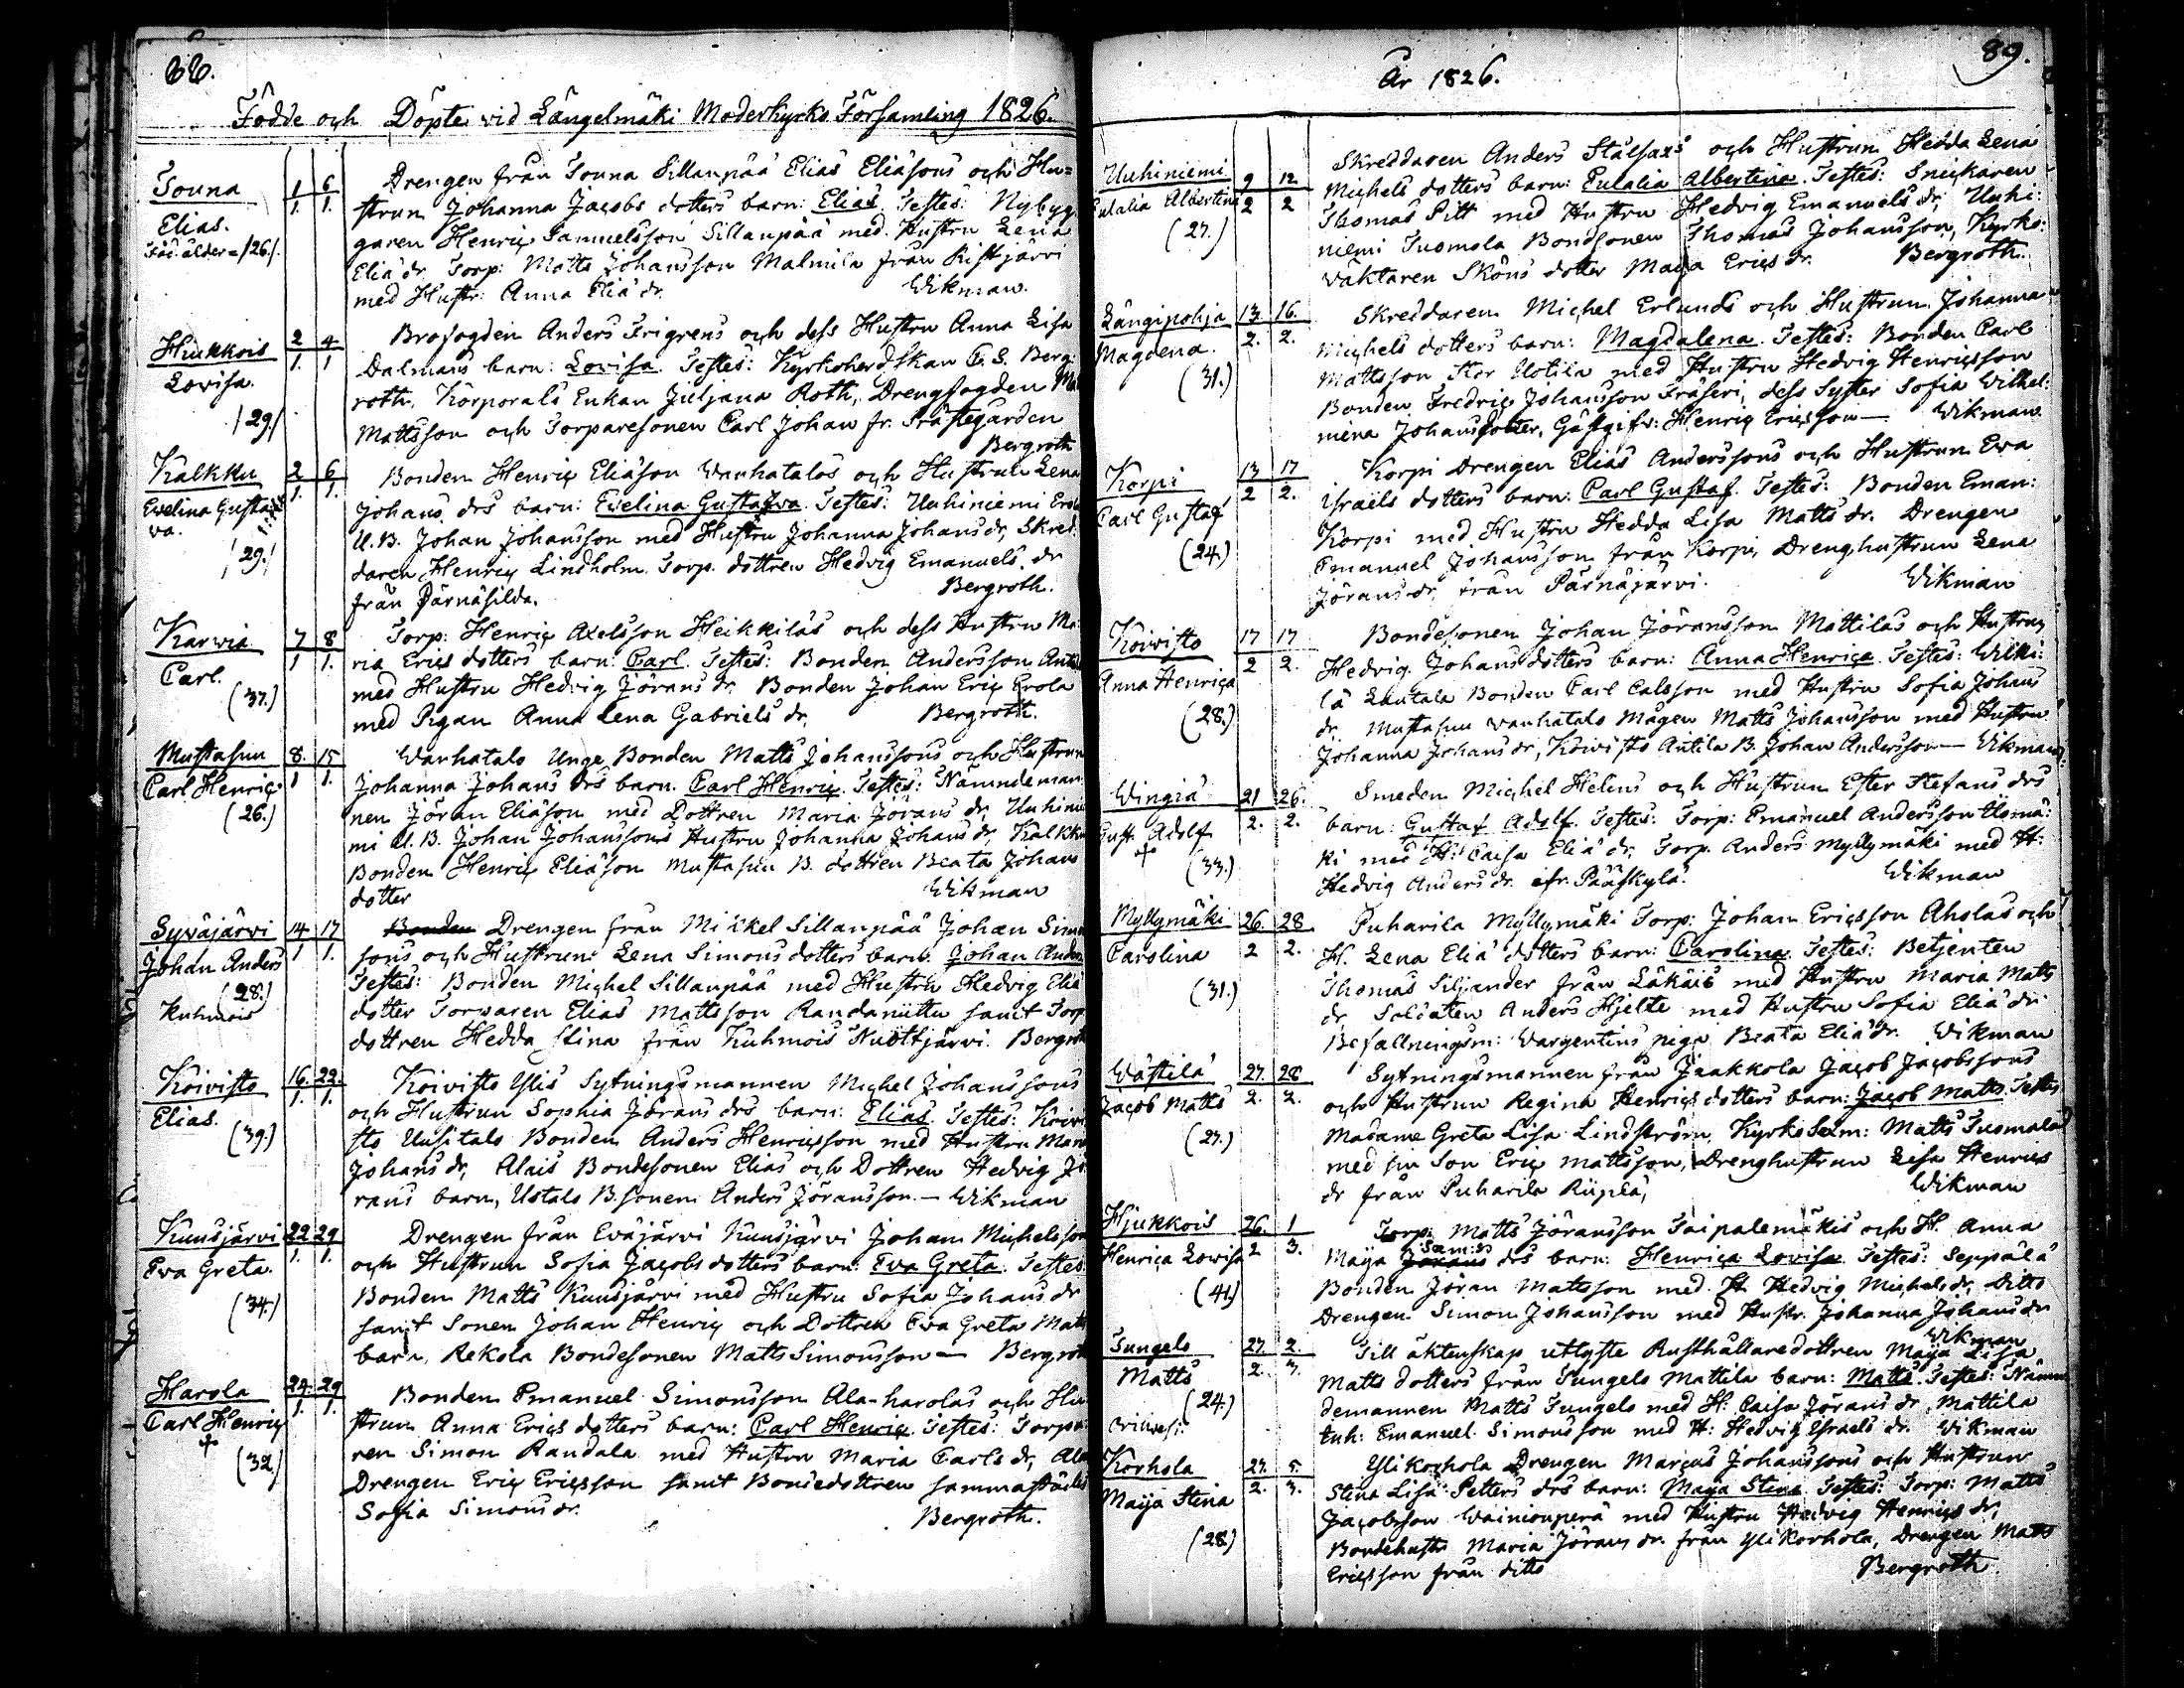 88.
Födde och Döpte vid Längelmäki Moderkyrko Församling 1826.
Touna 1/1. 6/1.
Elias.
Föd. ålder = /26/.
Drengen från Touna Sillanpää Elias Eliäsons och Hu=
strun Johanna Jacobs dotters barn: Elias. Testes: Nybyg-
garen Henric Samuelsson Sillanpää med Hustru Lena
Eliä dr. Torp: Matts Johansson Malmila från Ristjärvi
med Hustr: Anna Eliä dr. Wikman.
Hiukkois 2/1. 4/1
Lovisa.
/29/
Brofogden Anders Frigrens och dess Hustru Anna Lisa
Dalmans barn: Lovisa. Testes: Kyrkoherdskan C. S. Berg-
roth, Korporals Enkan Juljana Roth, Drengfogden
Mattsson och Torparesonen Carl Johan fr. Prästegården
Bergroth
Kalkku 2/1. 6/1.
Evelina Gustaf
va.
/29./
Bonden Henric Eliäson Wanhatalos och Hustrun Lena
Johans drs barn: Evelina Gustafva. Testes: Uuhiniemi
U.B. Johan Johansson med Hustru Johanna Johans dr, Skred-
daren Henric Lindholm. Torp. dottren Hedvig Emanuels dr
från Pärnäsilda. Bergroth.
Karwia 7/1 8/1.
Carl.
(37.)
Torp: Henric Axelsson Heikkiläs och dess Hustru Ma-
ria Erics dotters barn: Carl. Testes: Bonden Andersson
med Hustru Hedvig Jörans dr. Bonden Johan Eric Erola
med Pigan Anna Lena Gabriels dr. Bergroth.
Mustasuu 8./1 15/1.
Carl Henric
(26.)
Wanhatalo Unge Bonden Matts Johanssons och Hustrun
Johanna Johans drs barn. Carl Henric. Testes: Nämndeman-
nen Jöran Eliäson med Dottren Maria Jörans dr, Uuhinie
mi U.B. Johan Johanssons Hustru Johanna Johans dr, Kalkku
Bonden Henric Eliäson Mustasuu B. dottren Beata Johans
dotter Wikman
Syväjärvi 14/1 17/1.
Johan Anders
(28.)
Kuhmois
Bonden Drengen från Mickel Sillanpää Johan Simons
sons och Hustrun Lena Simons dotters barn. Johan Anders
Testes: Bonden Michel Sillanpää med Hustru Hedvig Eliä
dotter Torwaren Elias Mattsson Randaniittu samt Torp.
dottren Hedda Stina från Kuhmois Nuottjärvi. Bergroth
Koivisto 16./1. 22./1.
Elias.
(39.)
Koivisto Ylis Sytningsmannen Michel Johanssons
och Hustrun Sophia Jörans drs barn: Elias. Testes: Koivi
sto Uusitalo Bonden Anders Henricsson med Hustru Maria
Johans dr, Alais Bondesonen Elias och Dottren Hedvig Jö
rans barn, Uotalo B. sonen Anders Jöransson. — Wikman
Kuusjärvi 22/1. 29/1.
Eva Greta
(34.)
Drengen från Eväjärvi Kuusjärvi Johan Michelsson
och Hustrun Sofia Jacobs dotters barn: Eva Greta. Testes:
Bonden Matts Kuusjärvi med Hustru Sofia Johans dr
samt Sonen Johan Henric och Dottren Eva Greta Matts
barn, Rekola Bondesonen Matts Simonsson — Bergroth
Harola 24./1. 29/1.
Carl Henric
+
(32.)
Bonden Emanuel Simonsson Ala-harolas och Hu
strun Anna Erics dotters barn: Carl Henric. Testes: Torpa
ren Simon Randala med Hustru Maria Carls dr, Ala
Drengen Eric Ericsson samt Bondedottren sammastädes
Sofia Simons dr. Bergroth.
År 1826.
89.
Uuhiniemi 9/2 12/2
Eulalia Albertina
(27.)
Skreddaren Anders Stålsax's och Hustrun Hedda Lena
Michels dotters barn: Eulalia Albertina. Testes: Snickaren
Thomas Pitt med Hustru Hedvig Emanuels dr, Uuhi-
niemi Tuomola Bondsonen Thomas Johansson, Kyrko-
väktaren Sköns dotter Maija Erics dr. Bergroth.
Längipohja 13/2. 16./2.
Magdena.
(31.)
Skreddaren Michel Erlunds och Hustrun Johanna
Michels dotters barn: Magdalena. Testes: Bonden Carl
Mattsson Stor Uotila med Hustru Hedvig Henricsson
Bonden Fredric Johansson Fräseri, dess Syster Sofia Wilhel-
mina Johansdotter, Gästgifv: Henric Ericsson — Wikman
Korpi 13/2 17/2.
Carl Gustaf
(24.)
Korpi Drengen Elias Anderssons och Hustrun Eva
Israels dotters barn: Carl Gustaf. Testes: Bonden Eman:
Korpi med Hustru Hedda Lisa Matts dr. Drengen
Emanuel Johansson från Korpi, Drenghustrun Lena
Jörans dr, från Pärnäjärvi. Wikman
Koivisto 17/2 17/2.
Anna Henrica
(28.)
Bondesonen Johan Jöransson Mattilas och Hustrun
Hedvig Johans dotters barn: Anna Henrica. Testes: Wilki-
lä Lautala Bonden Carl Calsson med Hustru Sofia Johans
dr. Mustasuu Wanhatalo Mågen Matts Johansson med Hustru
Johanna Johans dr, Koivisto Antila B. Johan Andersson — Wikman.
Wingiä 21/2. 26./2.
Gust. Adolf
+
(33.)
Smeden Michel Helens och Hustrun Ester Stefans drs
barn: Gustaf Adolf. Testes: Torp: Emanuel Andersson
ki med H: Caisa Eliä dr. Torp. Anders Myllymäki med H:
Hedvig Anders dr. fr. Pääskylä. Wikman
Myllymäki 26./2 28/2.
Carolina
(31.)
Puharila Myllymäki Torp: Johan Ericsson Aholas och
H. Lena Eliä dotters barn: Carolina. Testes: Betjenten
Thomas Siljander från Läkäis med Hustru Maria Matts
dr. Soldaten Anders Hjelte med Hustru Sofia Eliä dr.
Befallningsm: Wargentins piga Beata Eliä dr. Wikman
Wästilä 27./2. 28/2.
Jacob Matts
(27.)
Sytningsmannen från Jaakkola Jacob Jacobssons
och Hustrun Regina Henrics dotters barn: Jacob Matts. Testes
Madame Greta Lisa Lindström, Kyrko Sexm: Matts Tuomala
med sin Son Eric Mattsson, Drenghustrun Lisa Henrics
dr från Puharila Wikman
Hjukkois 26./2 1/3.
Henrica Lovisa
(41.)
Torp: Matts Jöransson Taipalemäkis och H. Anna
Maija Jörans Sam:s drs barn: Henrica Lovisa. Testes: Seppälä
Bonden Jöran Mattsson med H. Hedvig Michels dr, Ditto
Drengen Simon Johansson med Hustr. Johanna Johans dr
Wikman
Sungelo 27./2. 2./3.
Matts
(24.)
Orivesi:
Till äktenskap utlyste Rusthållaredottren Maija Lisa
Matts dotters från Sungelo Mattila barn: Matts. Testes: Nämn-
demannen Matts Sungelo med H: Caisa Jörans dr, Mattila
Emanuel Simonsson med H: Hedvig Israels dr. Wikman
Korhola 27./2. 5./3.
Maija Stena
(28.)
Ylikorhola Drengen Marcus Johanssons och Hustrun
Stena Lisa Petters drs barn: Maija Stena. Testes: Torp: Matts
Jacobsson Wainionperä med Hustru Hedvig Henrics dr,
Bondehustr. Maria Jörans dr. från Ylikorhola, Drengen Matts
Ericsson från ditto Bergroth.